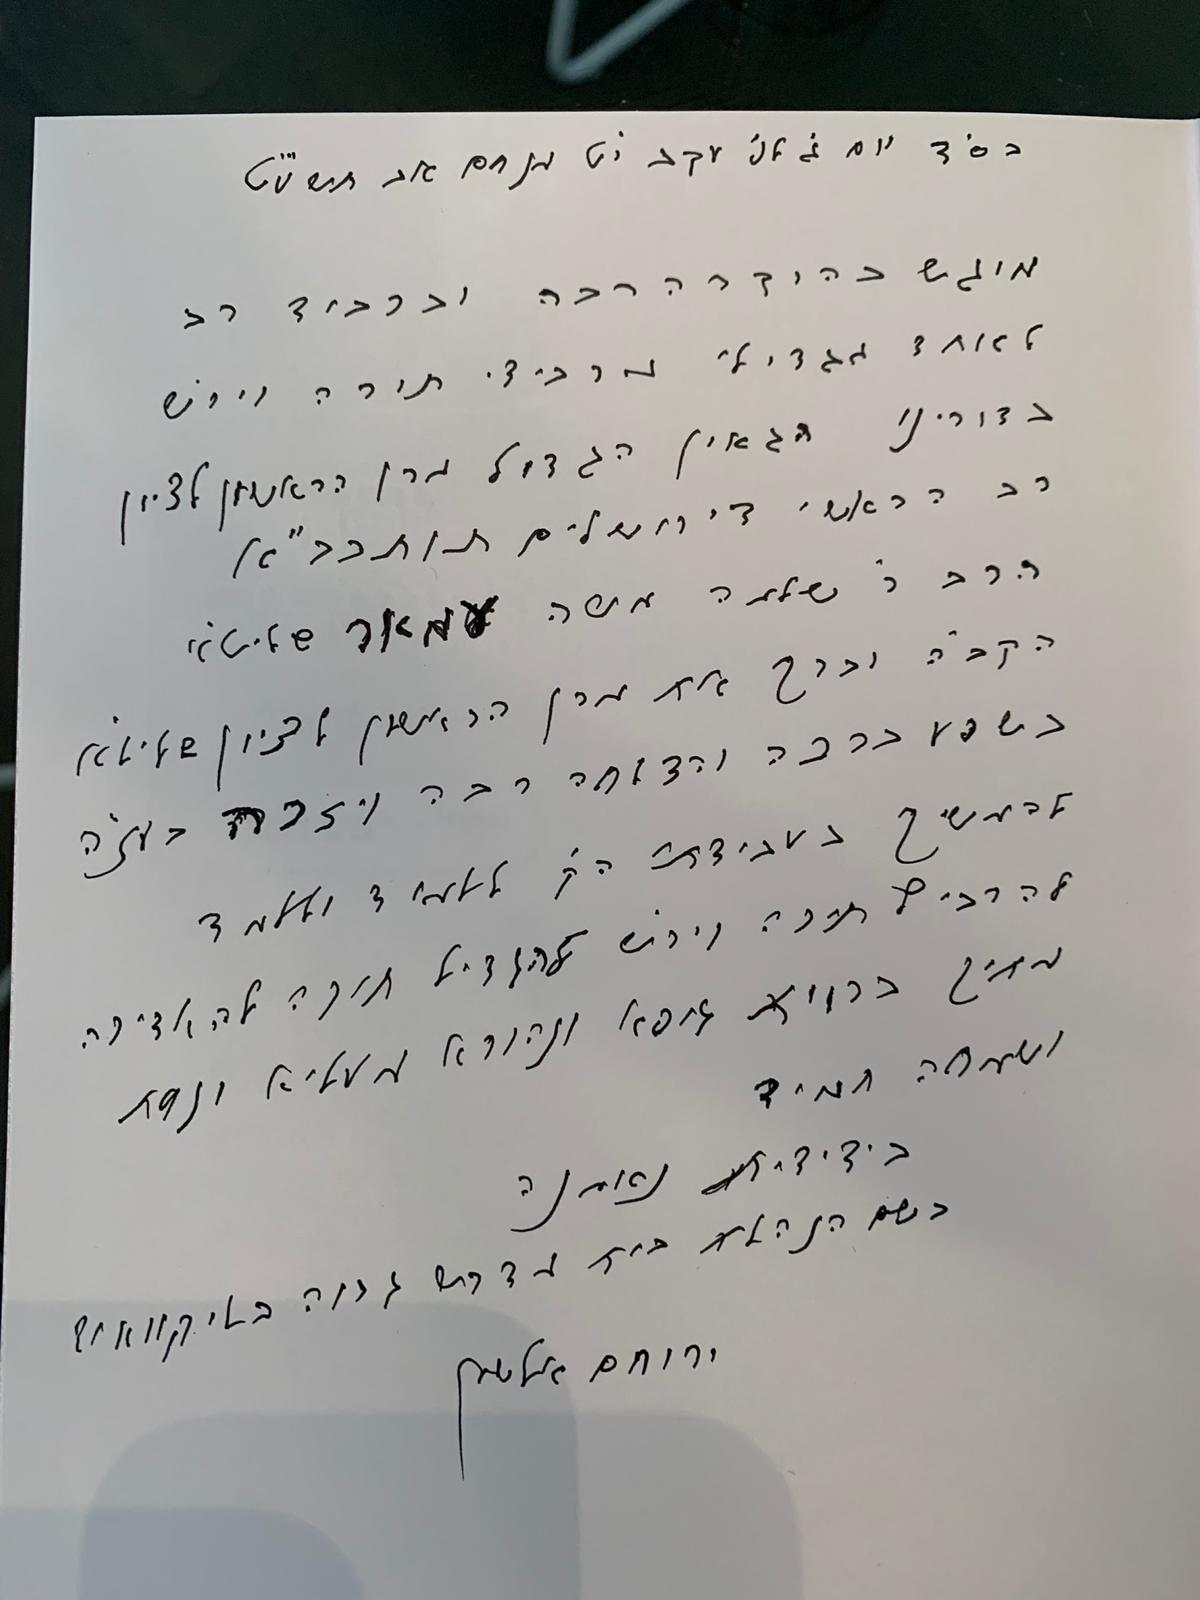 בס"ד יום ג' לפ' עקב י"ט מנחם אב תשע"ט
מוגש בהוקרה רבה ובכבוד רב
לאחד מגדולי מרביצי תורה ויר"ש
בדורינו הגאון הגדול מרן הראשון לציון
רב הראשי דירושלים תותבב"א
הרב ר' שלמה משה עמאר שליט"א
הקב"ה יברך את מרן הראשון לציון שליט"א
בשפע ברכה והצלחה רבה ויזכה בעז"ה
להמשיך בעבודתו הק' ללמוד וללמד
להרביץ תורה ויר"ש להגדיל תורה ולהאדירה
מתוך בריות גופא ונהורא מעליא ונחת
ושמחה תמיד
בידידות נאמנה
בשם הנהלת בית מדרש גבוה בלייקוואוד
ירוחם אלשין